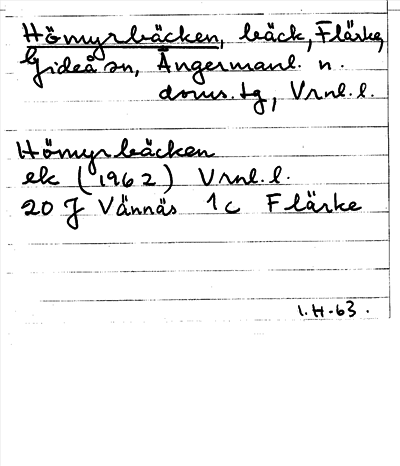 Hömyrbäcken, bäck, Flärke,
Gideå sn, Ångermanl. n.
doms.tg, Vrnl.l.
Hömyrbäcken
ek (1962) Vrnl.l.
20 J Vännäs 1c Flärke
I.H-63.